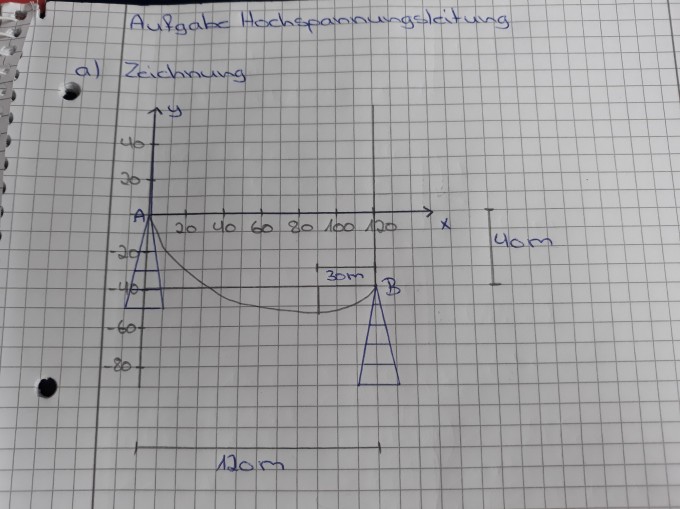 Aufgabe Hochspannungsleitung
a) Zeichnung
y
40
20
A
20 40 60 80 100 120
x
40m
-20
30m
-40
B
-60
-80
120m